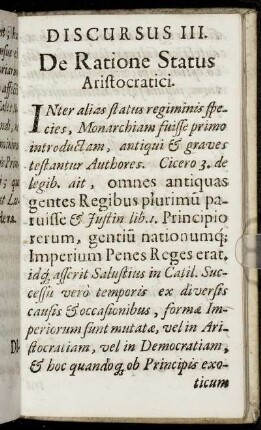 DISCURSUS III.
De Ratione Status
Aristocratici.
INter alias status regiminis spe-
cies, Monarchiam fuisse primo
introductam, antiqui & graves
testantur Authores. Cicero 3. de
legib. ait, omnes antiquas
gentes Regibus plurimū pa-
ruisse & Justin lib.1. Principio
rerum, gentiū nationumq;
Imperium Penes Reges erat,
idq; asserit Salustius in Catil. Suc-
cessū verò temporis ex diversis
causis & occasionibus, formæ Im-
periorum sunt mutatæ, vel in Ari-
stocratiam, vel in Democratiam,
& hoc quandoq; ob Principis exo-
ticum